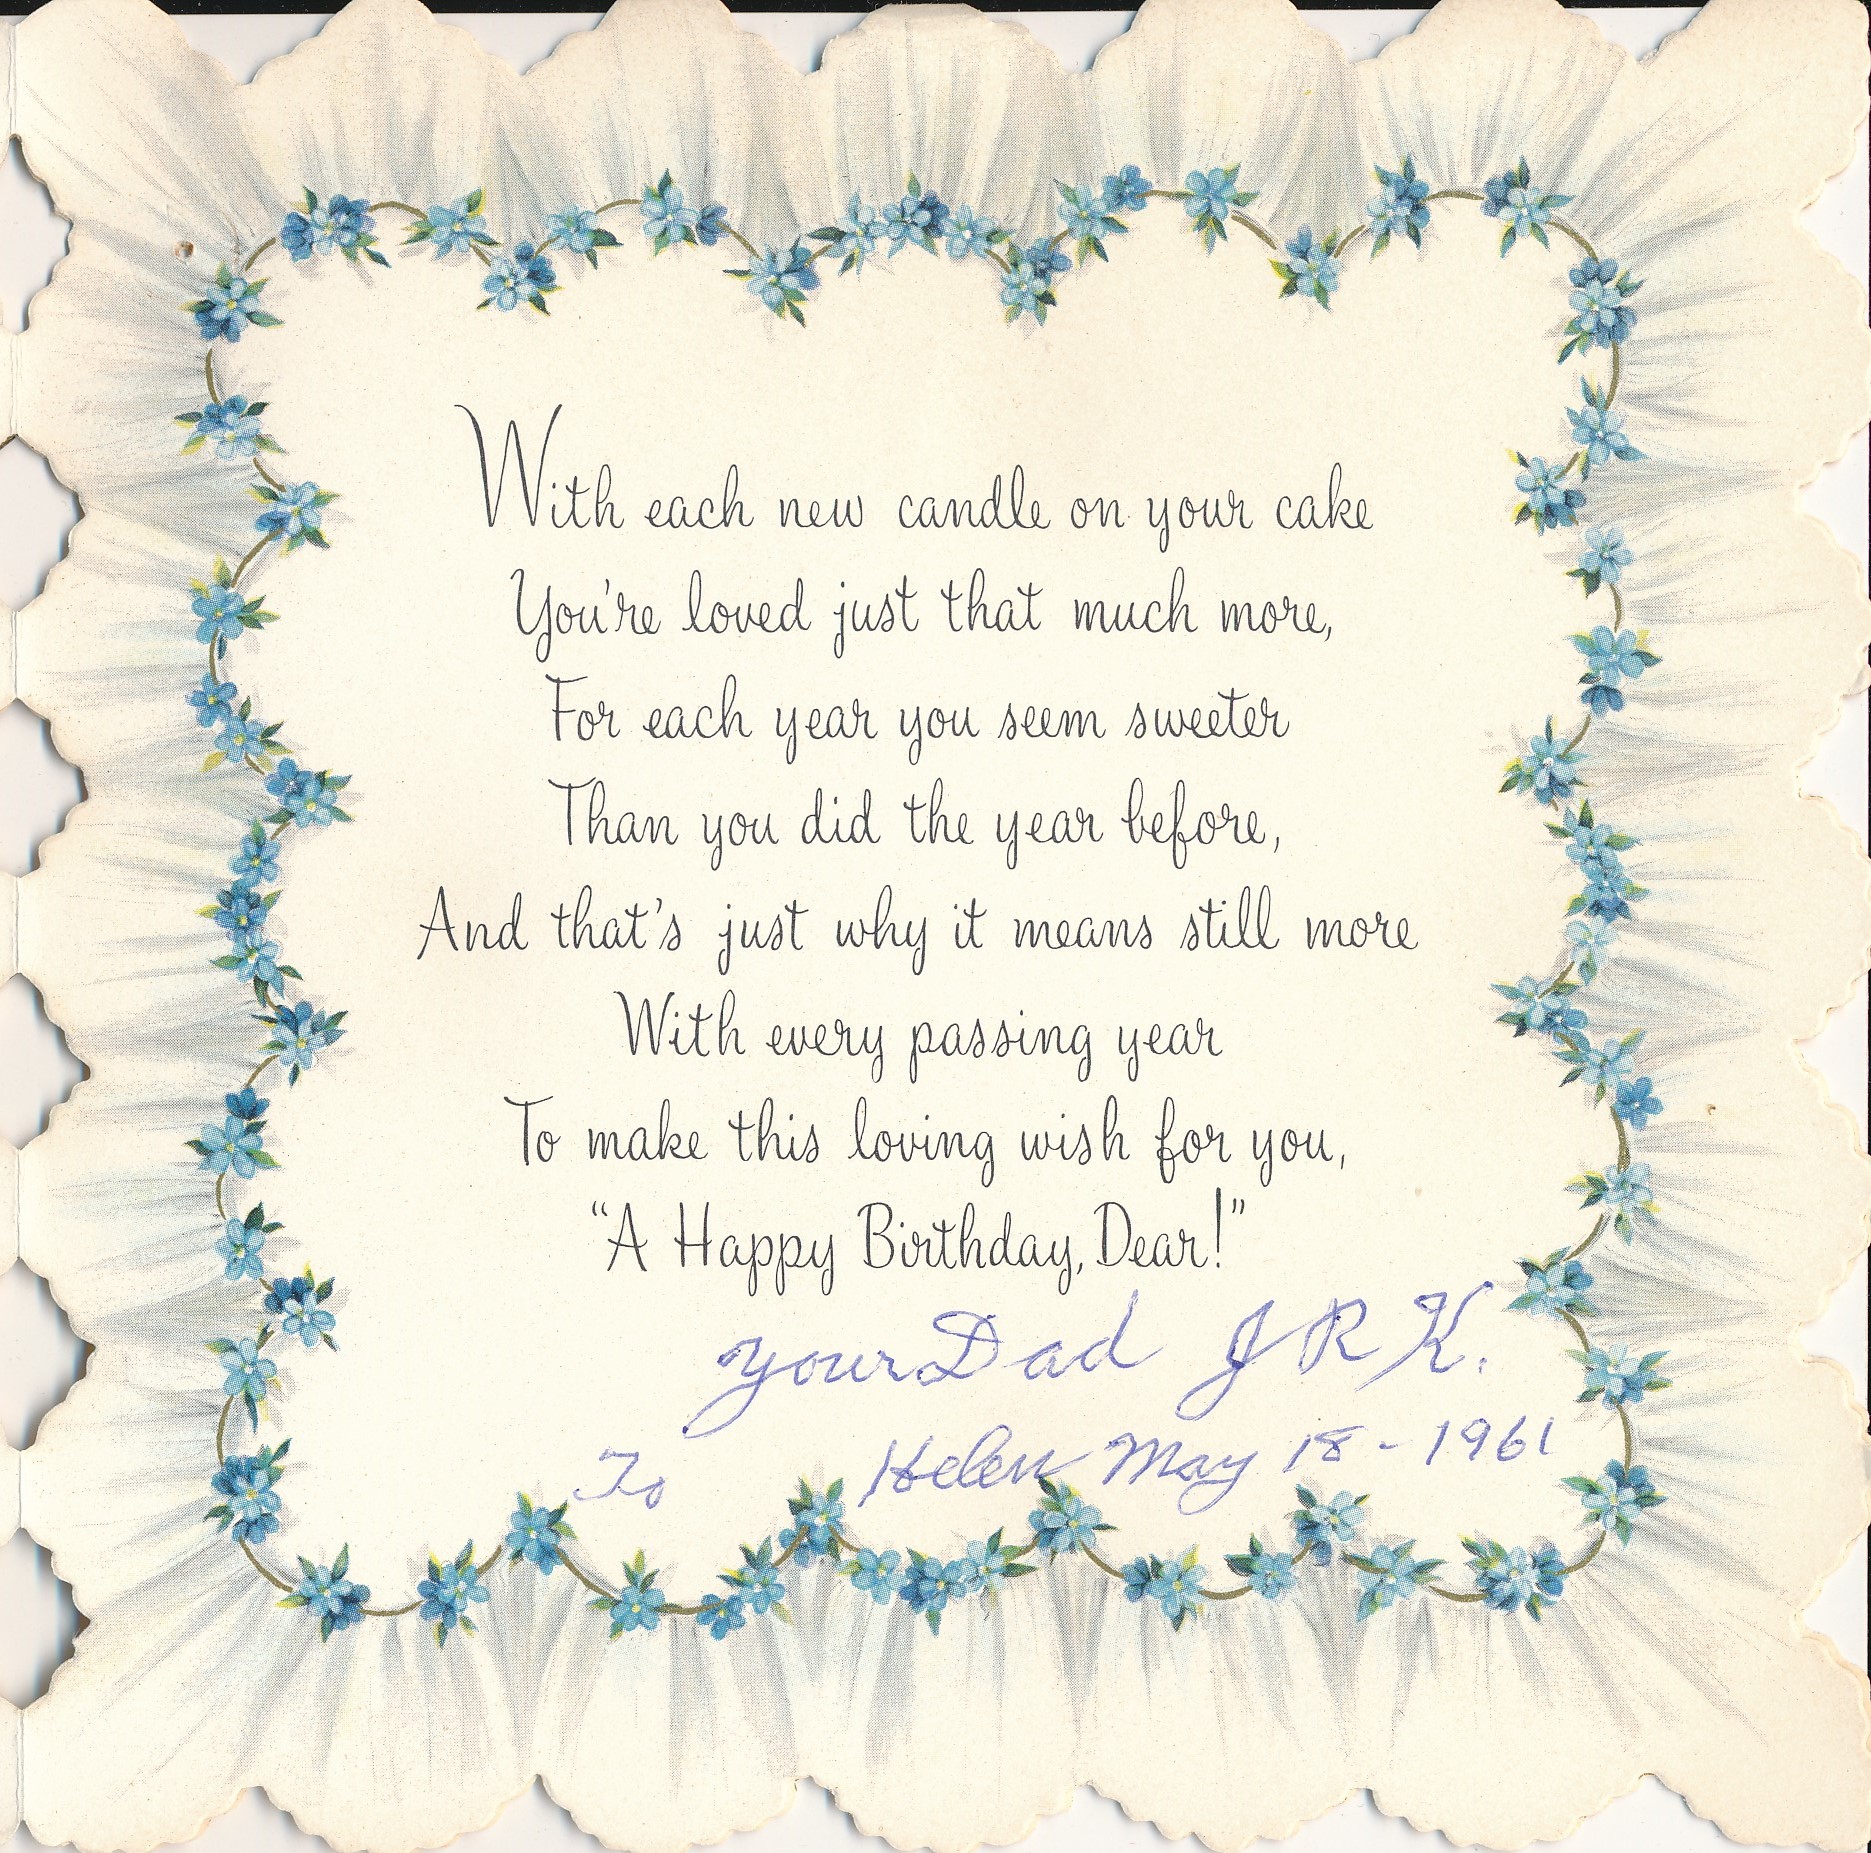 With each new candle on your cake
You're loved just that much more,
For each year you seem sweeter
Than you did the year before,
And that's just why it means still more
With every passing year
To make this loving wish for you,
"A Happy Birthday, Dear!"
your Dad J R K.
To Helen May 18 - 1961